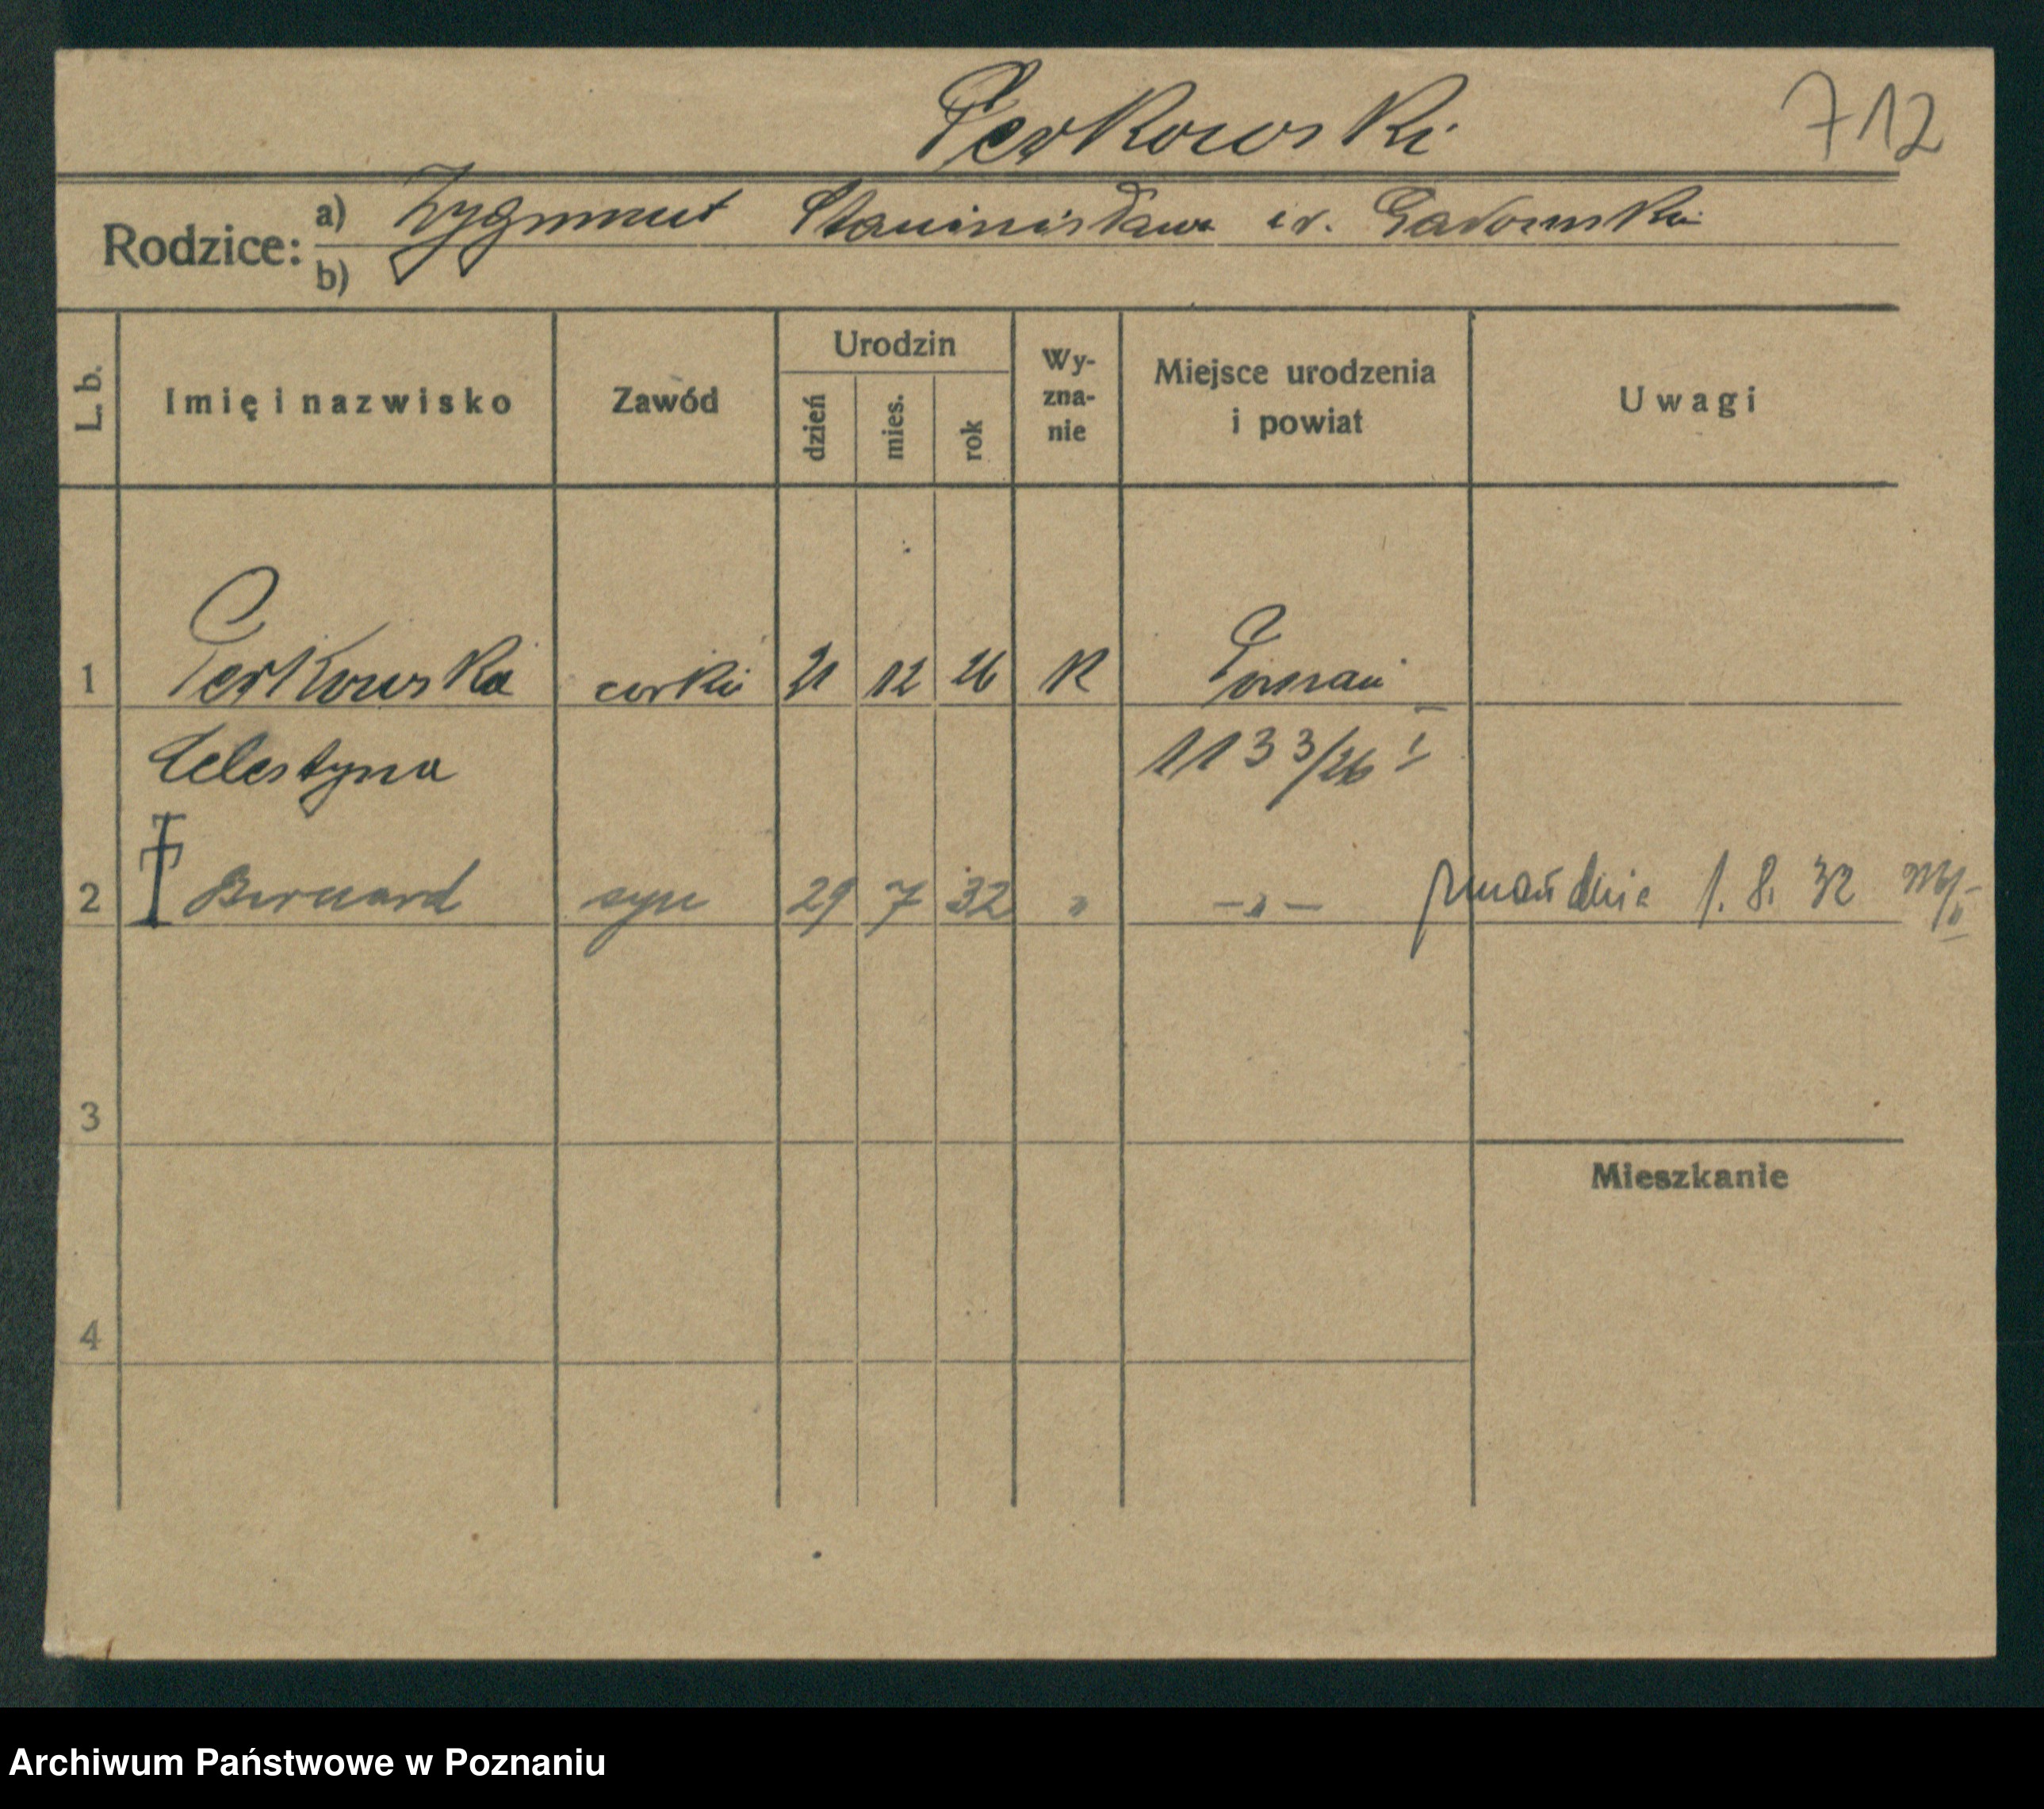 Perkowski 712
Rodzice: a) Zygmunt Stanisława ur. Gadomska
b)
L. b.
Imię i nazwisko
Zawód
Urodzin
dzień
mies.
rok
Wy-
zna-
nie
Miejsce urodzenia
i powiat
Uwagi
1 Perkowska córka 21 12 26 K Poznań
Celestyna 1133/26 I
2 Bernard syn 29 7 32 " -"- zmarł dnia 1. 8. 32
3
Mieszkanie
4
Archiwum Państwowe w Poznaniu